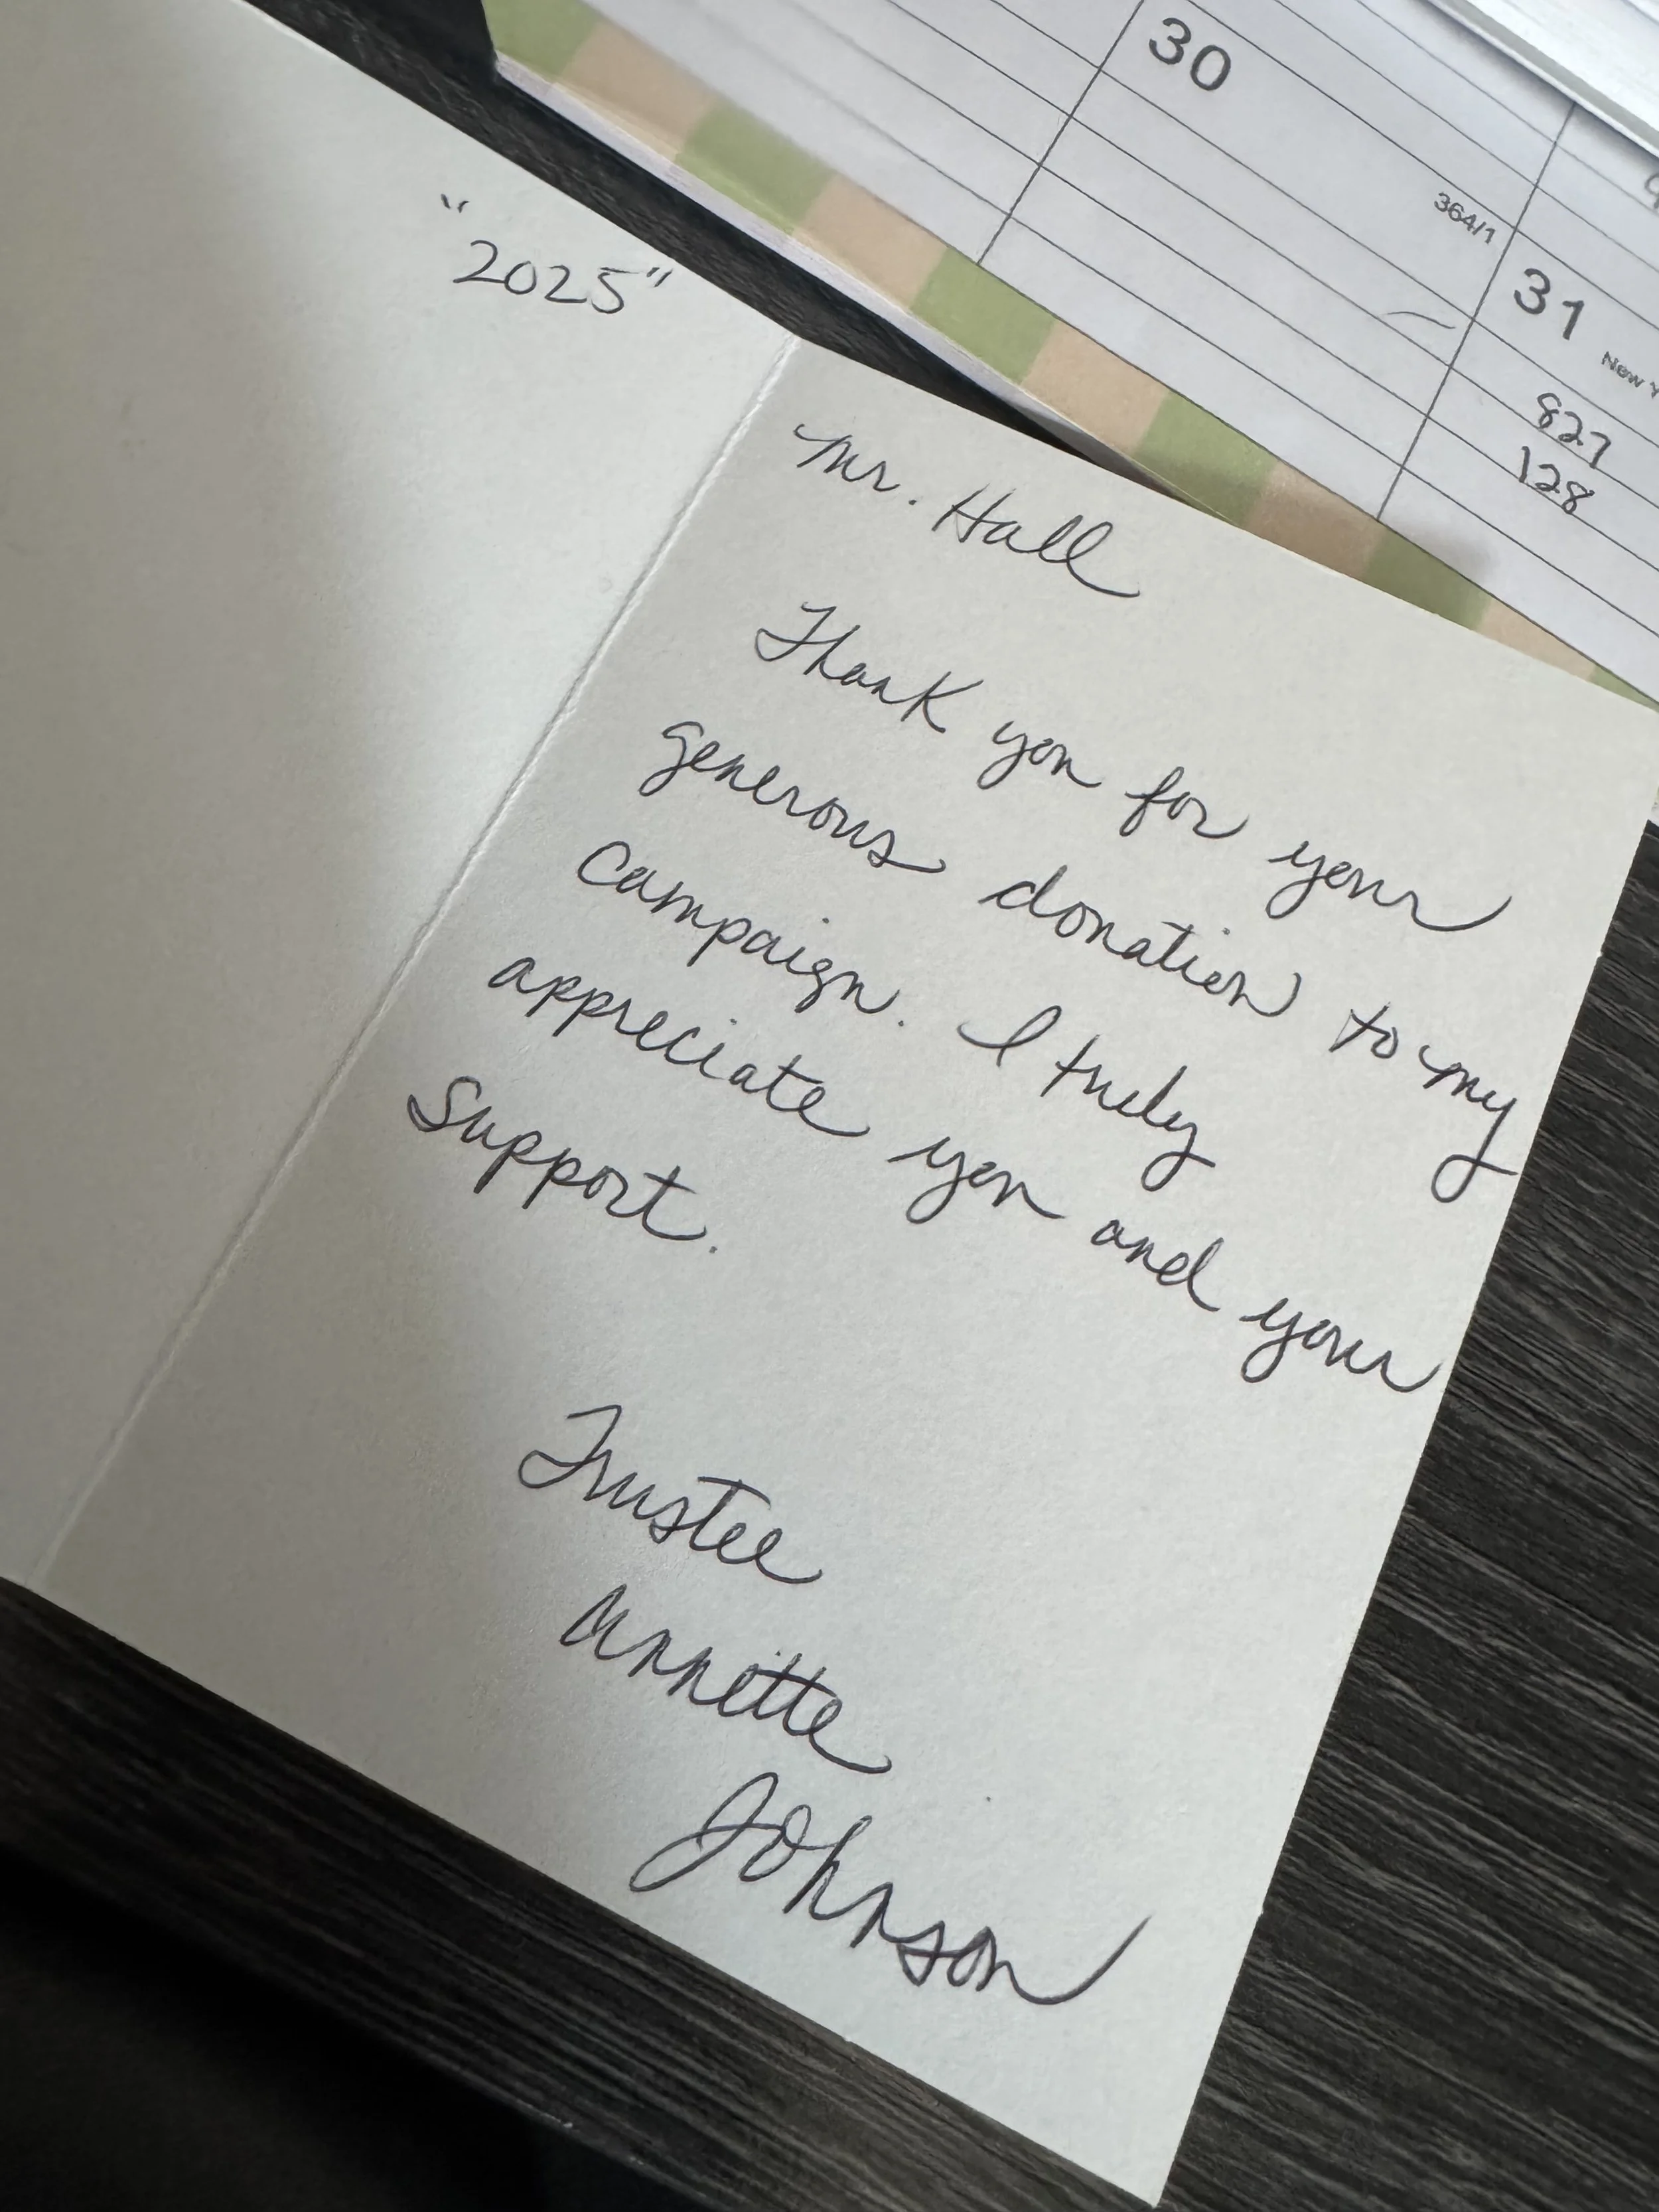 30
364/1
31
New Y
827
128
"2025"
Mr. Hall
Thank you for your
generous donation to my
campaign. I truly
appreciate you and your
support.
Trustee
Annette
Johnson